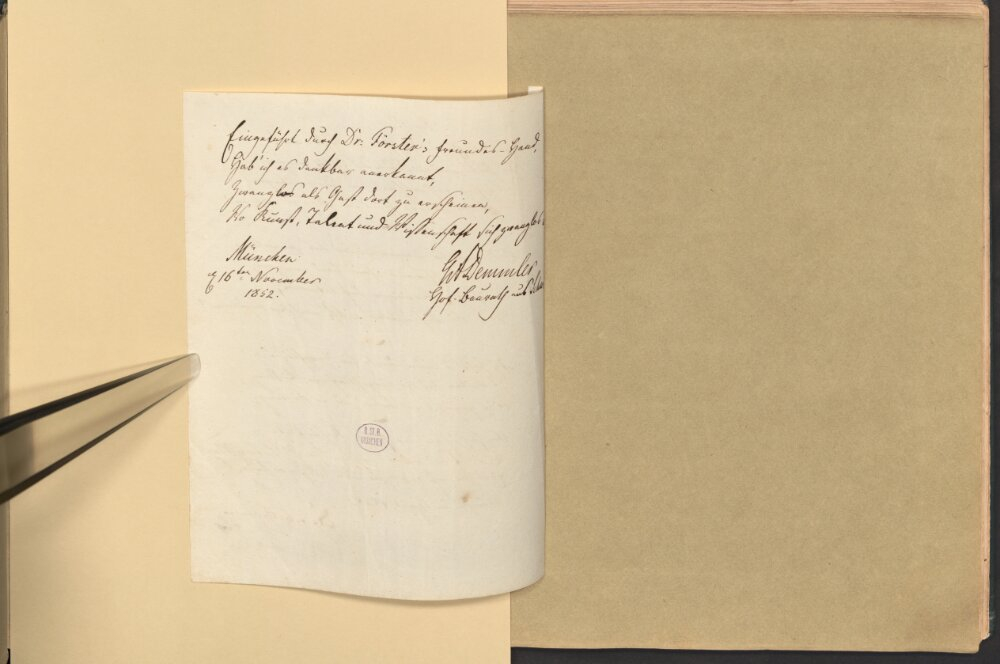 Eingeführt durch Dr. Förster's Freundes-Hand,
Hab' ich es dankbar anerkannt,
Zwanglos als Gast dort zu erscheinen,
Wo Kunst, Talent und Wissenschaft sich zwanglos
München
16ten November
1852.
Demmler
Hof-Baurath aus
B. ST. B.
MÜNCHEN